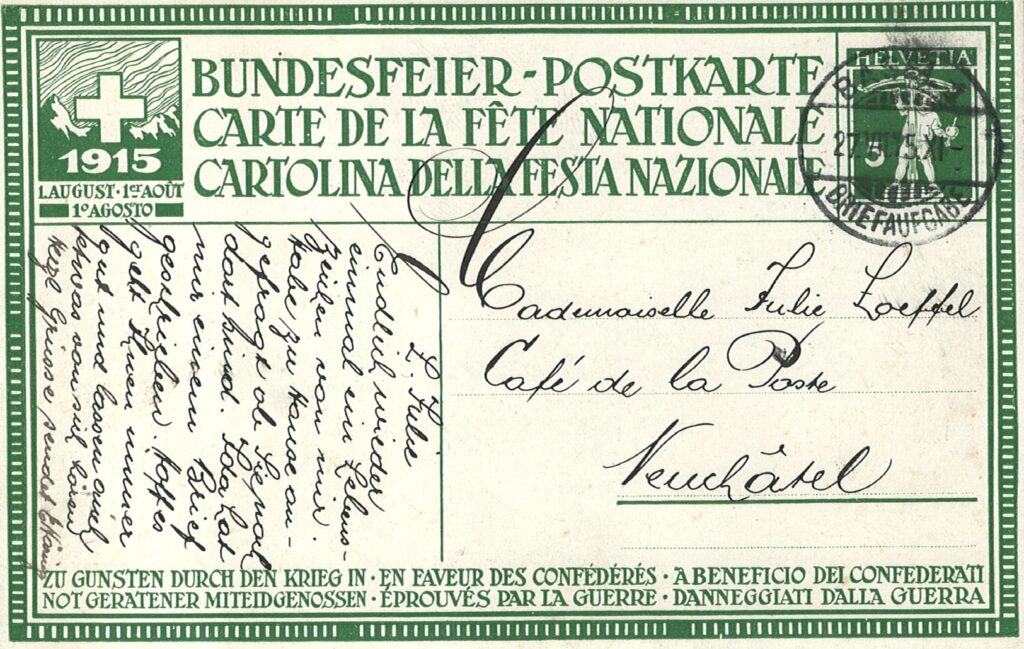 BUNDESFEIER-POSTKARTE
CARTE DE LA FÊTE NATIONALE
CARTOLINA DELLA FESTA NAZIONALE
1915
1. AUGUST · 1er AOÛT
1º AGOSTO
HELVETIA
5
BASEL
BRIEFAUFGABE
Mademoiselle Julie Loeffel
Café de la Poste
Neuchâtel
L. Julie
Endlich wieder
einmal ein Lebens-
zeichen von mir.
Habe zu Hause an-
gefragt ob Sie noch
dort sind. Ida hat
mir einen Brief
geschrieben. Hoffe
geht Ihnen immer
gut und lassen auch
etwas von sich hören
Herzl. Grüsse sendet
ZU GUNSTEN DURCH DEN KRIEG IN · EN FAVEUR DES CONFÉDÉRÉS · A BENEFICIO DEI CONFEDERATI
NOT GERATENER MITEIDGENOSSEN · ÉPROUVÉS PAR LA GUERRE · DANNEGGIATI DALLA GUERRA